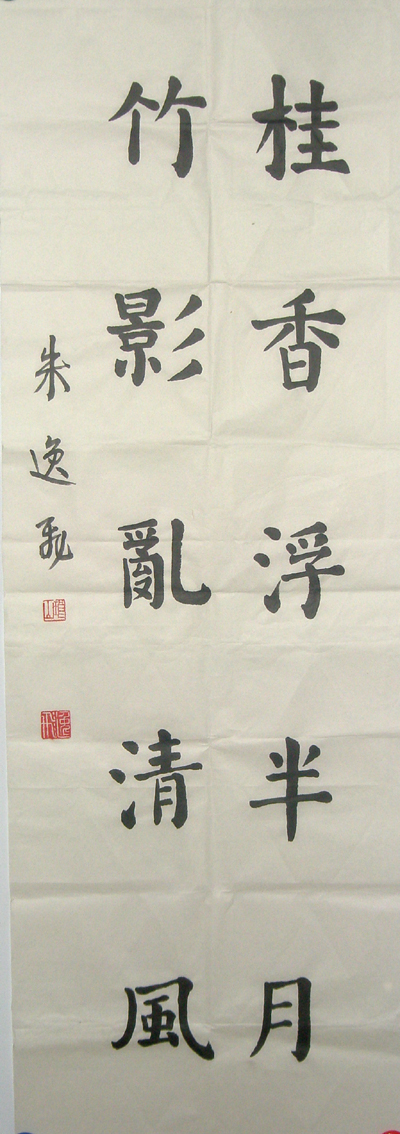 桂香浮半月
竹影亂清風
朱逸